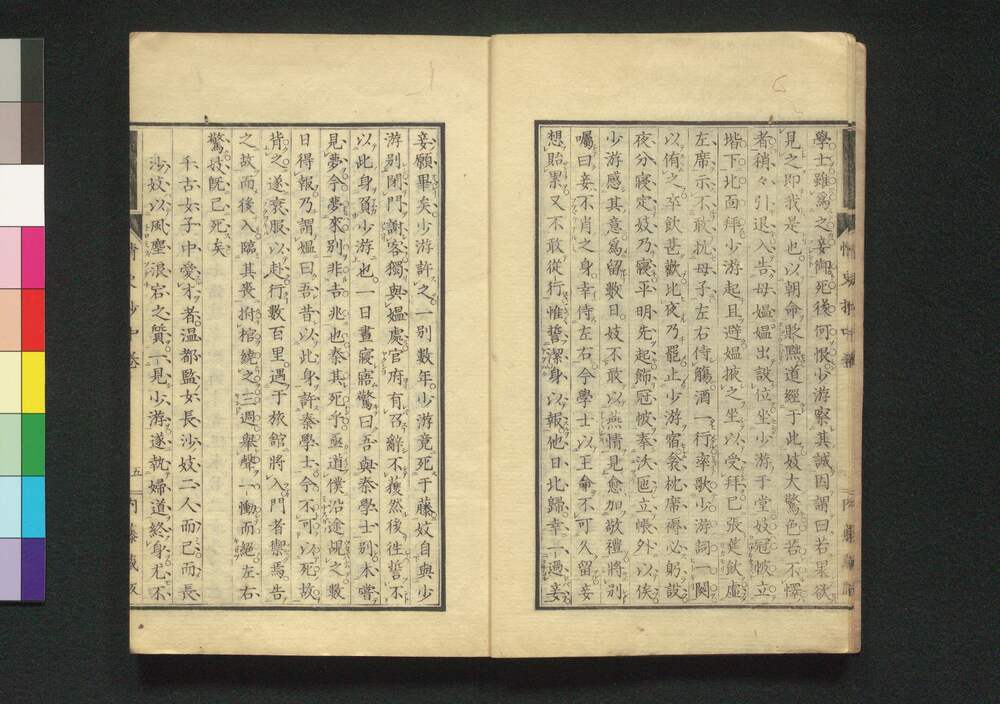 學士雖爲之妾御死復何恨少游察其誠因謂曰若果欲
見之即我是也以朝命貶黜道經于此妓大驚色若不懌
者稍々引退入告母媼媼出設位坐少游于堂妓冠帔立
堦下北面拜少游起且避媼掖之坐以受拜已張筵飲虛
左席示不敢抗母子左右侍觴酒一行率歌少游詞一闋
以侑之卒飲甚歡比夜乃罷止少游宿衾枕席褥必躬設
夜分寢定妓乃寢平明先起飾冠帔奉沃匜立帳外以俟
少游感其意爲留數日妓不敢以燕惰見愈加敬禮將別
囑曰妾不肖之身幸侍左右今學士以王命不可久留妾
想貽累又不敢從行惟誓潔身以報他日北歸幸一過妾
妾願畢矣少游許之一別數年少游竟死于藤妓自與少
游別閉門謝客獨與媼處官府有召辭不獲然後往誓不
以此身負少游也一日晝寢寤驚曰吾與秦學士別未嘗
見夢今夢來別非吉兆也秦其死乎亟遣僕沿途覘之數
日得報乃謂媼曰吾昔以此身許秦學士今不可以死故
背之遂衰服以赴行數百里遇于旅館將入門者禦焉告
之故而後入臨其喪拊棺繞之三週舉聲一慟而絕左右
驚救既已死矣
千古女子中愛才者溫都監女長沙妓二人而已而長
沙妓以風塵浪宕之質一見少游遂執婦道終身尤不
情史抄中卷
五